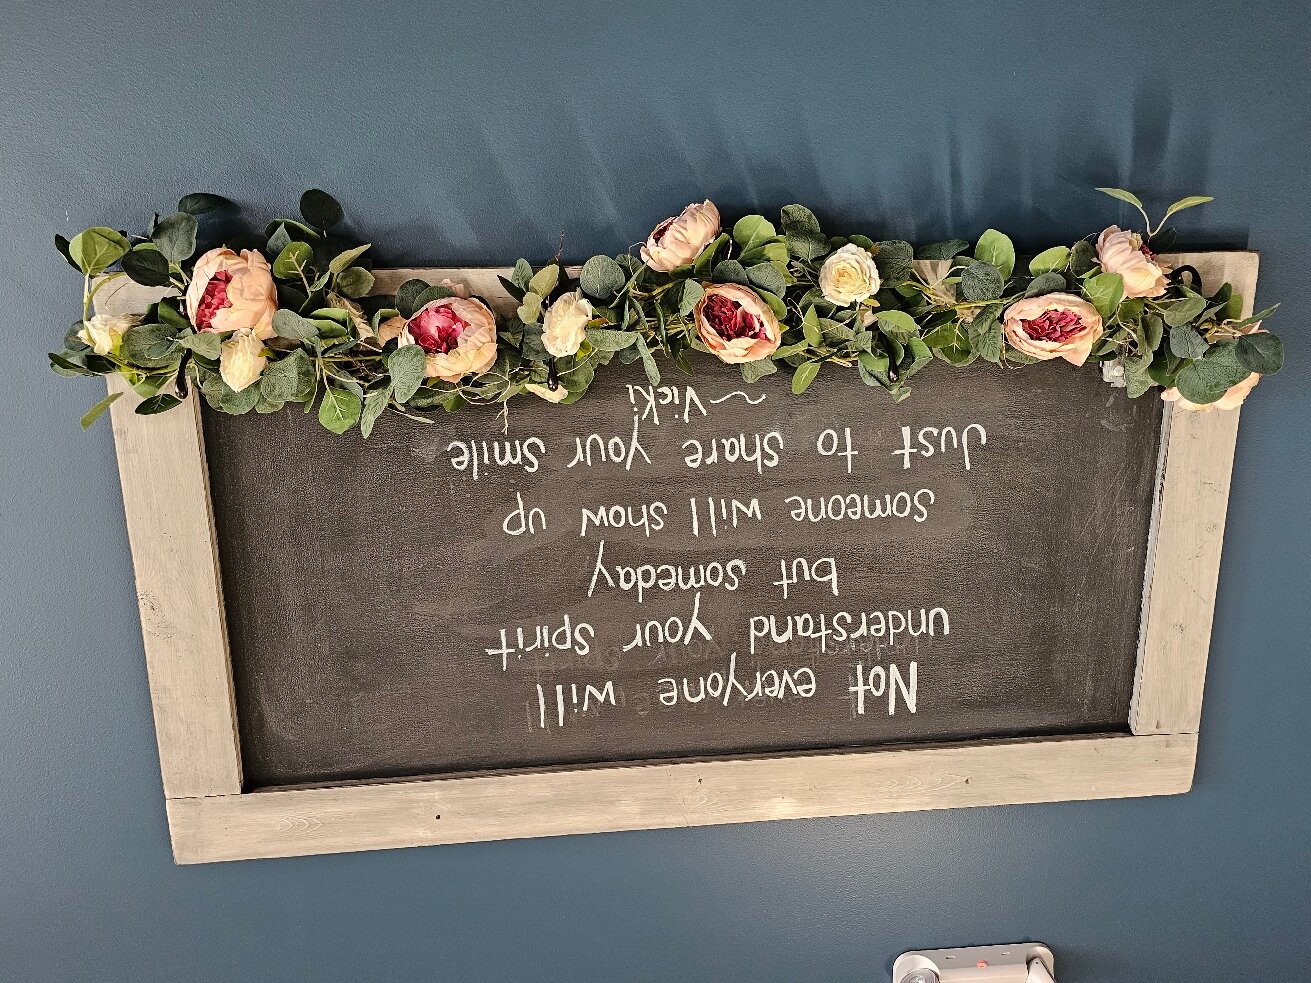 Not everyone will
understand your Spirit
but someday
Someone will show up
Just to share your Smile
~Vicki